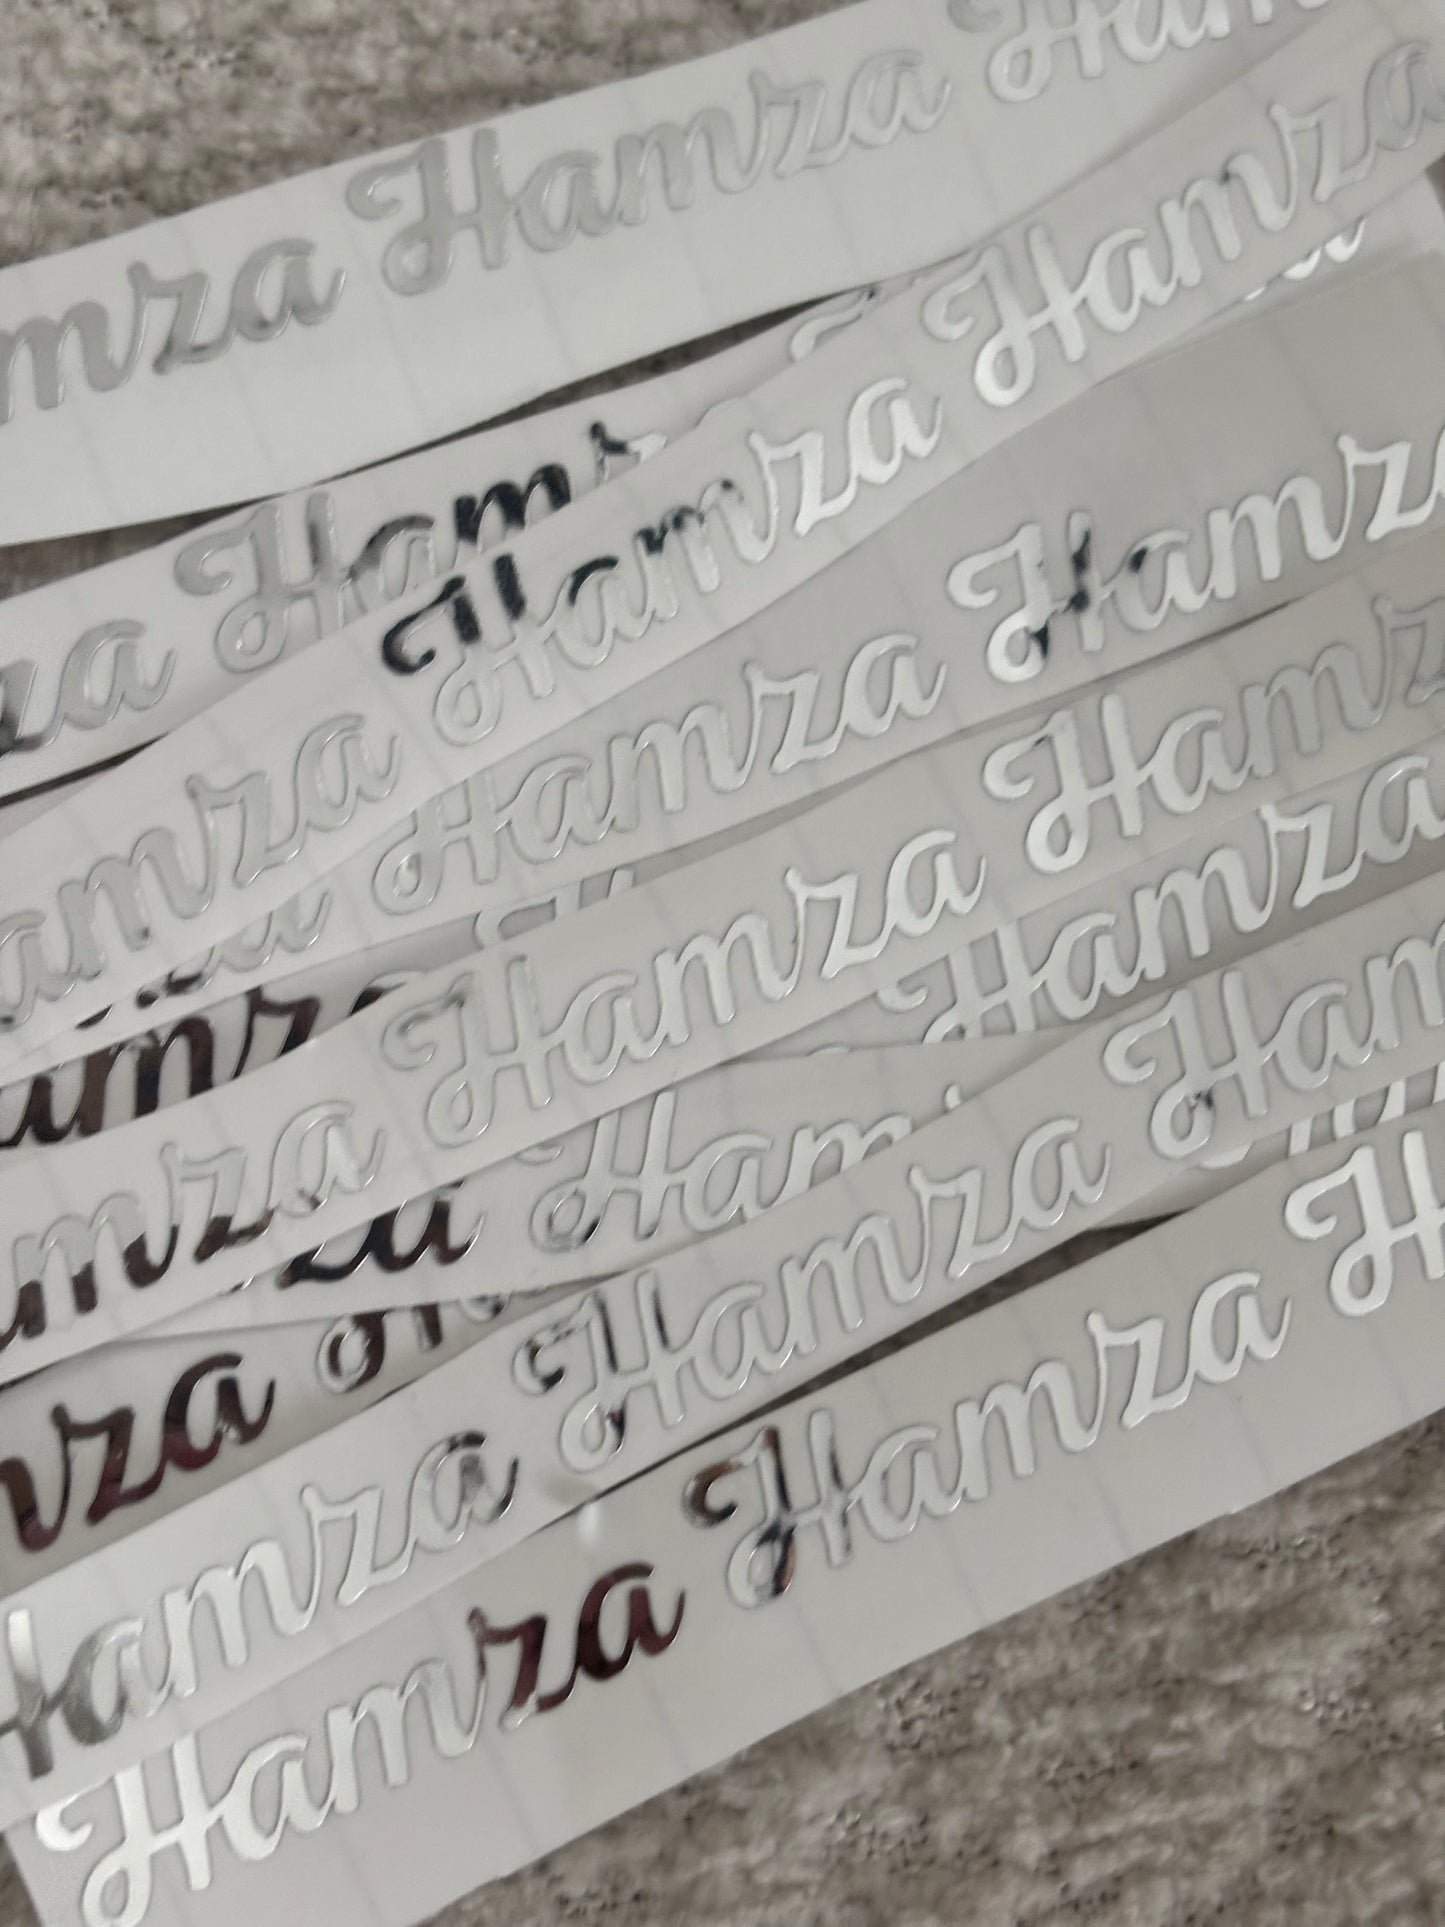 mza Hamza Ham
za Ham
amza Hamza Hamza
Hamza Hamza
amza
amza Hamza Hamza
Hamza
za Ham
za
Hamza Hamza Ham
Hamza Hamza H